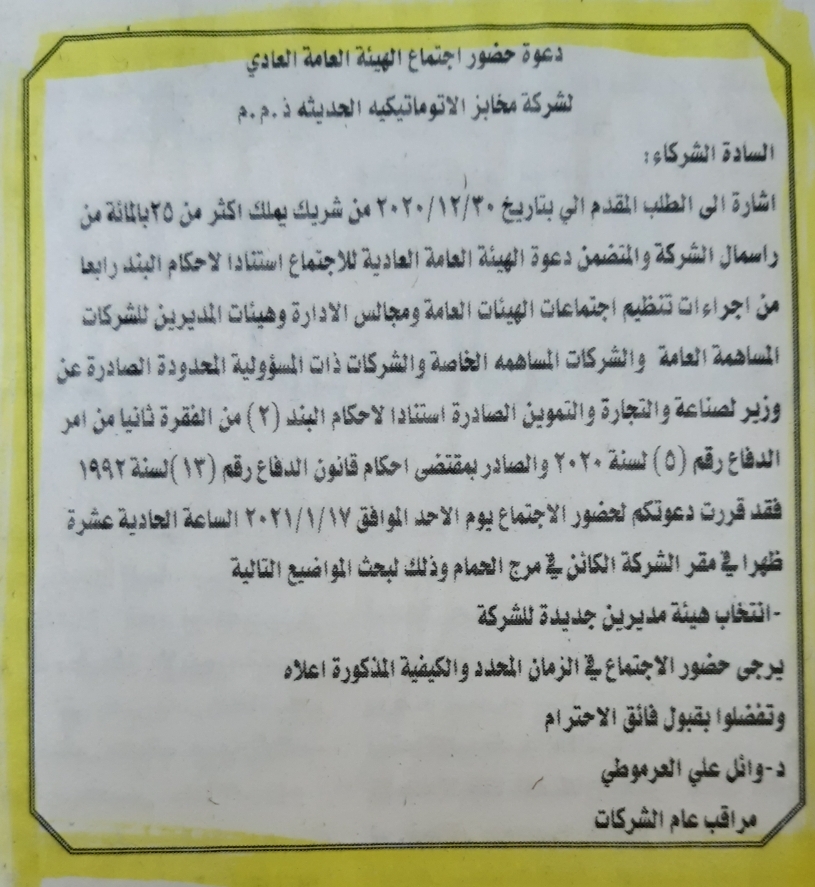 دعوة حضور اجتماع الهيئة العامة العادي
لشركة مخابز الاتوماتيكيه الحديثه ذ.م.م
السادة الشركاء:
اشارة الى الطلب المقدم الي بتاريخ ٢٠٢٠/١٢/٣٠ من شريك يملك اكثر من ٢٥بالمائة من
راسمال الشركة والمتضمن دعوة الهيئة العامة العادية للاجتماع استنادا لاحكام البند رابعا
من اجراءات تنظيم اجتماعات الهيئات العامة ومجالس الادارة وهيئات المديرين للشركات
المساهمة العامة والشركات المساهمه الخاصة والشركات ذات المسؤولية المحدودة الصادرة عن
وزير لصناعة والتجارة والتموين الصادرة استنادا لاحكام البند (٢) من الفقرة ثانيا من امر
الدفاع رقم (٥) لسنة ٢٠٢٠ والصادر بمقتضى احكام قانون الدفاع رقم (١٣)لسنة ١٩٩٢
فقد قررت دعوتكم لحضور الاجتماع يوم الاحد الموافق ٢٠٢١/١/١٧ الساعة الحادية عشرة
ظهرا في مقر الشركة الكائن في مرج الحمام وذلك لبحث المواضيع التالية
-انتخاب هيئة مديرين جديدة للشركة
يرجى حضور الاجتماع في الزمان المحدد والكيفية المذكورة اعلاه
وتفضلوا بقبول فائق الاحترام
د-وائل علي العرموطي
مراقب عام الشركات